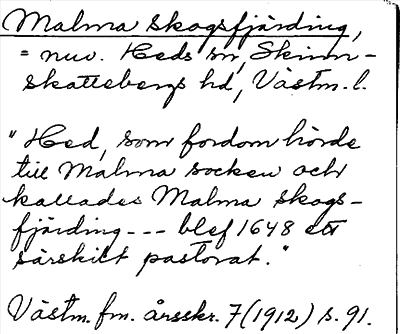 Malma skogsfjärding,
= nuv. Heds sn, Skinn-
skattebergs hd, Västm. l.
"Hed, som fordom hörde
till Malma socken och
kallades Malma skogs-
fjärding --- blef 1648 ett
särskilt pastorat."
Västm. fm. årsskr. 7 (1912) s. 91.